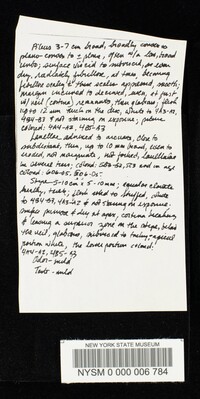 Pileus 3-7 cm broad, broadly convex to
plano-convex to ± plane, often w/a low, broad
umbo, surface viscid to subviscid, or soon
dry, radially fibrillose, at times, becoming
fibrillose scaly & these scales appressed, smooth;
margin incurved to decurved, even, at first
w/ veil (cortina) remnants, then glabrous; flesh
up to 12 mm thick in the disc, white to
4B4-B3 & not staining on exposure;
colored: 4A4-A3, 4B5-A3
Lamellae adnexed to arcuate, close to
subdistant, thin, up to 10 mm broad, even to
eroded, not marginate, not forked, lamellulae
in several tiers; colored: 5B4-B2, 5C3 and in age
colored: 6D6-D5.
Stipe 5-10 cm x 5-10 mm; equal or clavate
fleshy, flesh solid to stuffed, white
to 4B4-B3, & not staining on exposure.
surface dry at apex, cortina breaking
& leaving a superior zone on the stipe, below
the veil, glabrous, apical
portion white, the lower portion colored:
4B5-
Odor - mild
Taste - mild
NEW YORK STATE MUSEUM
NYSM 0 000 006 784